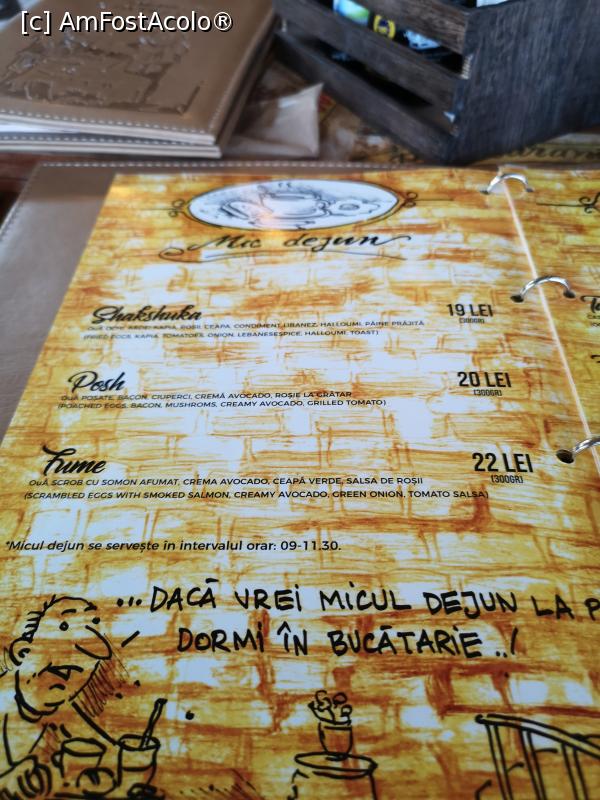 [c] AmFostAcolo®
Mic dejun
Shakshuka 19 LEI
OUĂ OCHI, ARDEI KAPIA, ROȘII, CEAPĂ, CONDIMENT LIBANEZ, HALLOUMI, PÂINE PRĂJITĂ (300GR)
(FRIED EGGS, KAPIA, TOMATOES, ONION, LEBANESESPICE, HALLOUMI, TOAST)
Posh 20 LEI
OUĂ POSATE, BACON, CIUPERCI, CREMĂ AVOCADO, ROȘIE LA GRĂTAR (300GR)
(POACHED EGGS, BACON, MUSHROMS, CREAMY AVOCADO, GRILLED TOMATO)
Fume 22 LEI
OUĂ SCROB CU SOMON AFUMAT, CREMA AVOCADO, CEAPĂ VERDE, SALSA DE ROȘII (300GR)
(SCRAMBLED EGGS WITH SMOKED SALMON, CREAMY AVOCADO, GREEN ONION, TOMATO SALSA)
*Micul dejun se servește în intervalul orar: 09-11.30.
...DACĂ VREI MICUL DEJUN LA P
DORMI ÎN BUCĂTĂRIE..!